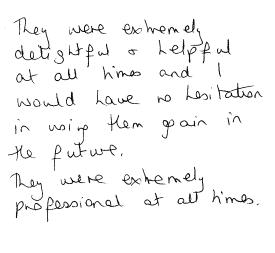 They were extremely
delightful & helpful
at all times and I
would have no hesitation
in using them again in
the future.
They were extremely
professional at all times.